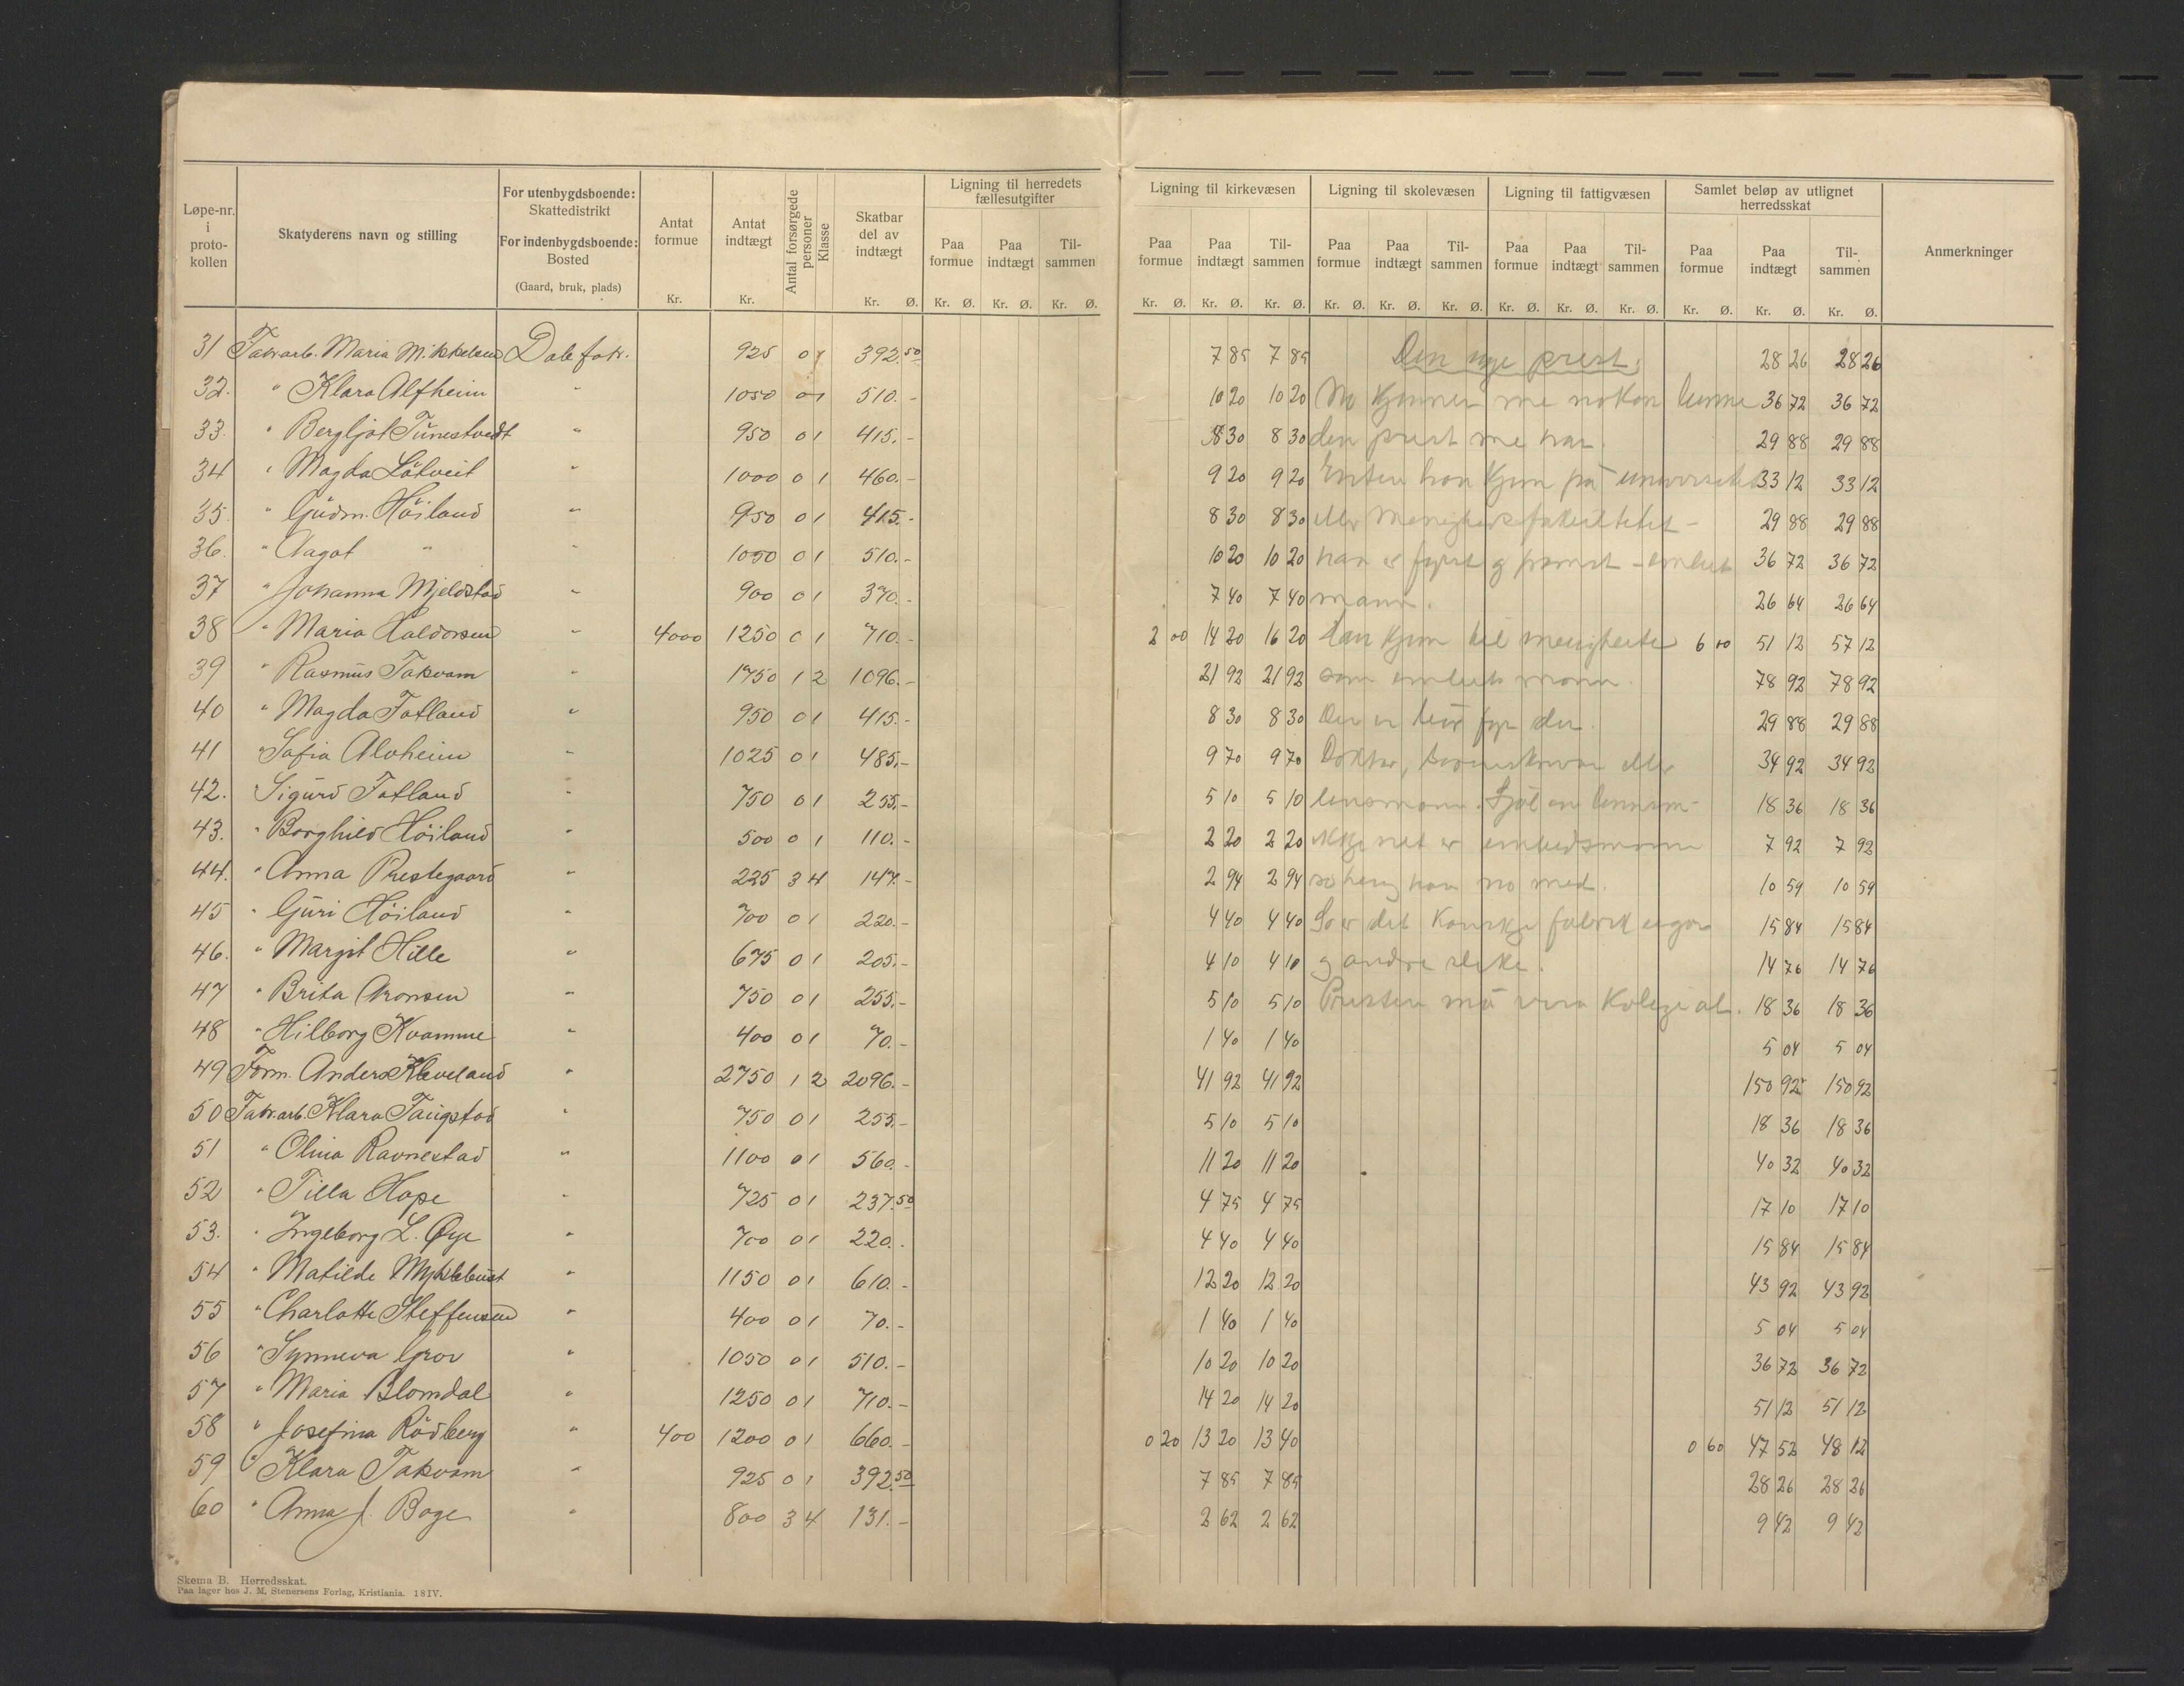 Løpe-nr. i proto-kollen
Skatyderens navn og stilling
For utenbygdsboende: Skattedistrikt
For indenbygdsboende: Bosted
(Gaard, bruk, plads)
Antat formue Kr.
Antat indtægt Kr.
Antal forsørgede personer
Klasse
Skatbar del av indtægt Kr. Ø.
Ligning til herredets fællesutgifter
Paa formue Kr. Ø. Paa indtægt Kr. Ø. Til-sammen Kr. Ø.
Ligning til kirkevæsen
Paa formue Kr. Ø. Paa indtægt Kr. Ø. Til-sammen Kr. Ø.
Ligning til skolevæsen
Paa formue Kr. Ø. Paa indtægt Kr. Ø. Til-sammen Kr. Ø.
Ligning til fattigvæsen
Paa formue Kr. Ø. Paa indtægt Kr. Ø. Til-sammen Kr. Ø.
Samlet beløp av utlignet herredsskat
Paa formue Kr. Ø. Paa indtægt Kr. Ø. Til-sammen Kr. Ø.
Anmerkninger
31 Fabr.arb. Maria Mikkelsen Dale fabr. 925 0 1 392.50 7 85 7 85 Den nye prest. 28 26 28 26
32. " Klara Alfheim " 1050 0 1 510.- 10 20 10 20 me nokon 36 72 36 72
33. " Bergljot Tunestvedt " 950 0 1 415.- 8 30 8 30 den prest me har. 29 88 29 88
34 " Magda Låtveit " 1000 0 1 460.- 9 20 9 20 Enten han kjem på universitet 33 12 33 12
35. " Gudm. Höiland " 950 0 1 415.- 8 30 8 30 eller Menighetsfakultetet - 29 88 29 88
36. " Aagot " " 1050 0 1 510.- 10 20 10 20 han er fyrst og fremst - embets 36 72 36 72
37 " Johanna Mjeldstad " 900 0 1 370.- 7 40 7 40 mann. 26 64 26 64
38 " Maria Haldorsen " 4000 1250 0 1 710.- 2 00 14 20 16 20 Han kjem til menigheten 6 00 51 12 57 12
39 " Rasmus Takvam " 1750 1 2 1096.- 21 92 21 92 som embets mann. 78 92 78 92
40 " Magda Fatland " 950 0 1 415.- 8 30 8 30 Den er 29 88 29 88
41 " Sofia Alvheim " 1025 0 1 485.- 9 70 9 70 Doktor, eller 34 92 34 92
42. " Sigurd Fatland " 750 0 1 255.- 5 10 5 10 lensmann. Sjöl om 18 36 18 36
43. " Borghild Höiland " 500 0 1 110.- 2 20 2 20 ikkje er embedsmann 7 92 7 92
44. " Anna Prestegaard " 225 3 4 147.- 2 94 2 94 so heng han no med. 10 59 10 59
45 " Guri Höiland " 700 0 1 220.- 4 40 4 40 So er det kanskje fabrik eigar 15 84 15 84
46. " Margit Hille " 675 0 1 205.- 4 10 4 10 og andre slike. 14 76 14 76
47 " Brita Aronsen " 750 0 1 255.- 5 10 5 10 Presten må vera Kolegial. 18 36 18 36
48 " Hilborg Kvamme " 400 0 1 70.- 1 40 1 40 5 04 5 04
49 Form. Anders Kleveland " 2750 1 2 2096.- 41 92 41 92 150 92 150 92
50 Fabr.arb. Klara Taugstad " 750 0 1 255.- 5 10 5 10 18 36 18 36
51 " Olina Ravnestad " 1100 0 1 560.- 11 20 11 20 40 32 40 32
52 " Tilla Hope " 725 0 1 237.50 4 75 4 75 17 10 17 10
53. " Ingeborg L. Øye " 700 0 1 220.- 4 40 4 40 15 84 15 84
54 " Matilde Myklebust " 1150 0 1 610.- 12 20 12 20 43 92 43 92
55 " Charlotte Steffensen " 400 0 1 70.- 1 40 1 40 5 04 5 04
56 " Synneva Grov " 1050 0 1 510.- 10 20 10 20 36 72 36 72
57 " Maria Blomdal " 1250 0 1 710.- 14 20 14 20 51 12 51 12
58 " Josefina Rödberg " 400 1200 0 1 660.- 0 20 13 20 13 40 0 60 47 52 48 12
59 " Klara Takvam " 925 0 1 392.50 7 85 7 85 28 26 28 26
60 " Anna J. Boge " 800 3 4 131.- 2 62 2 62 9 42 9 42
Skema B. Herredsskat.
Paa lager hos J. M. Stenersens Forlag, Kristiania. 18 IV.